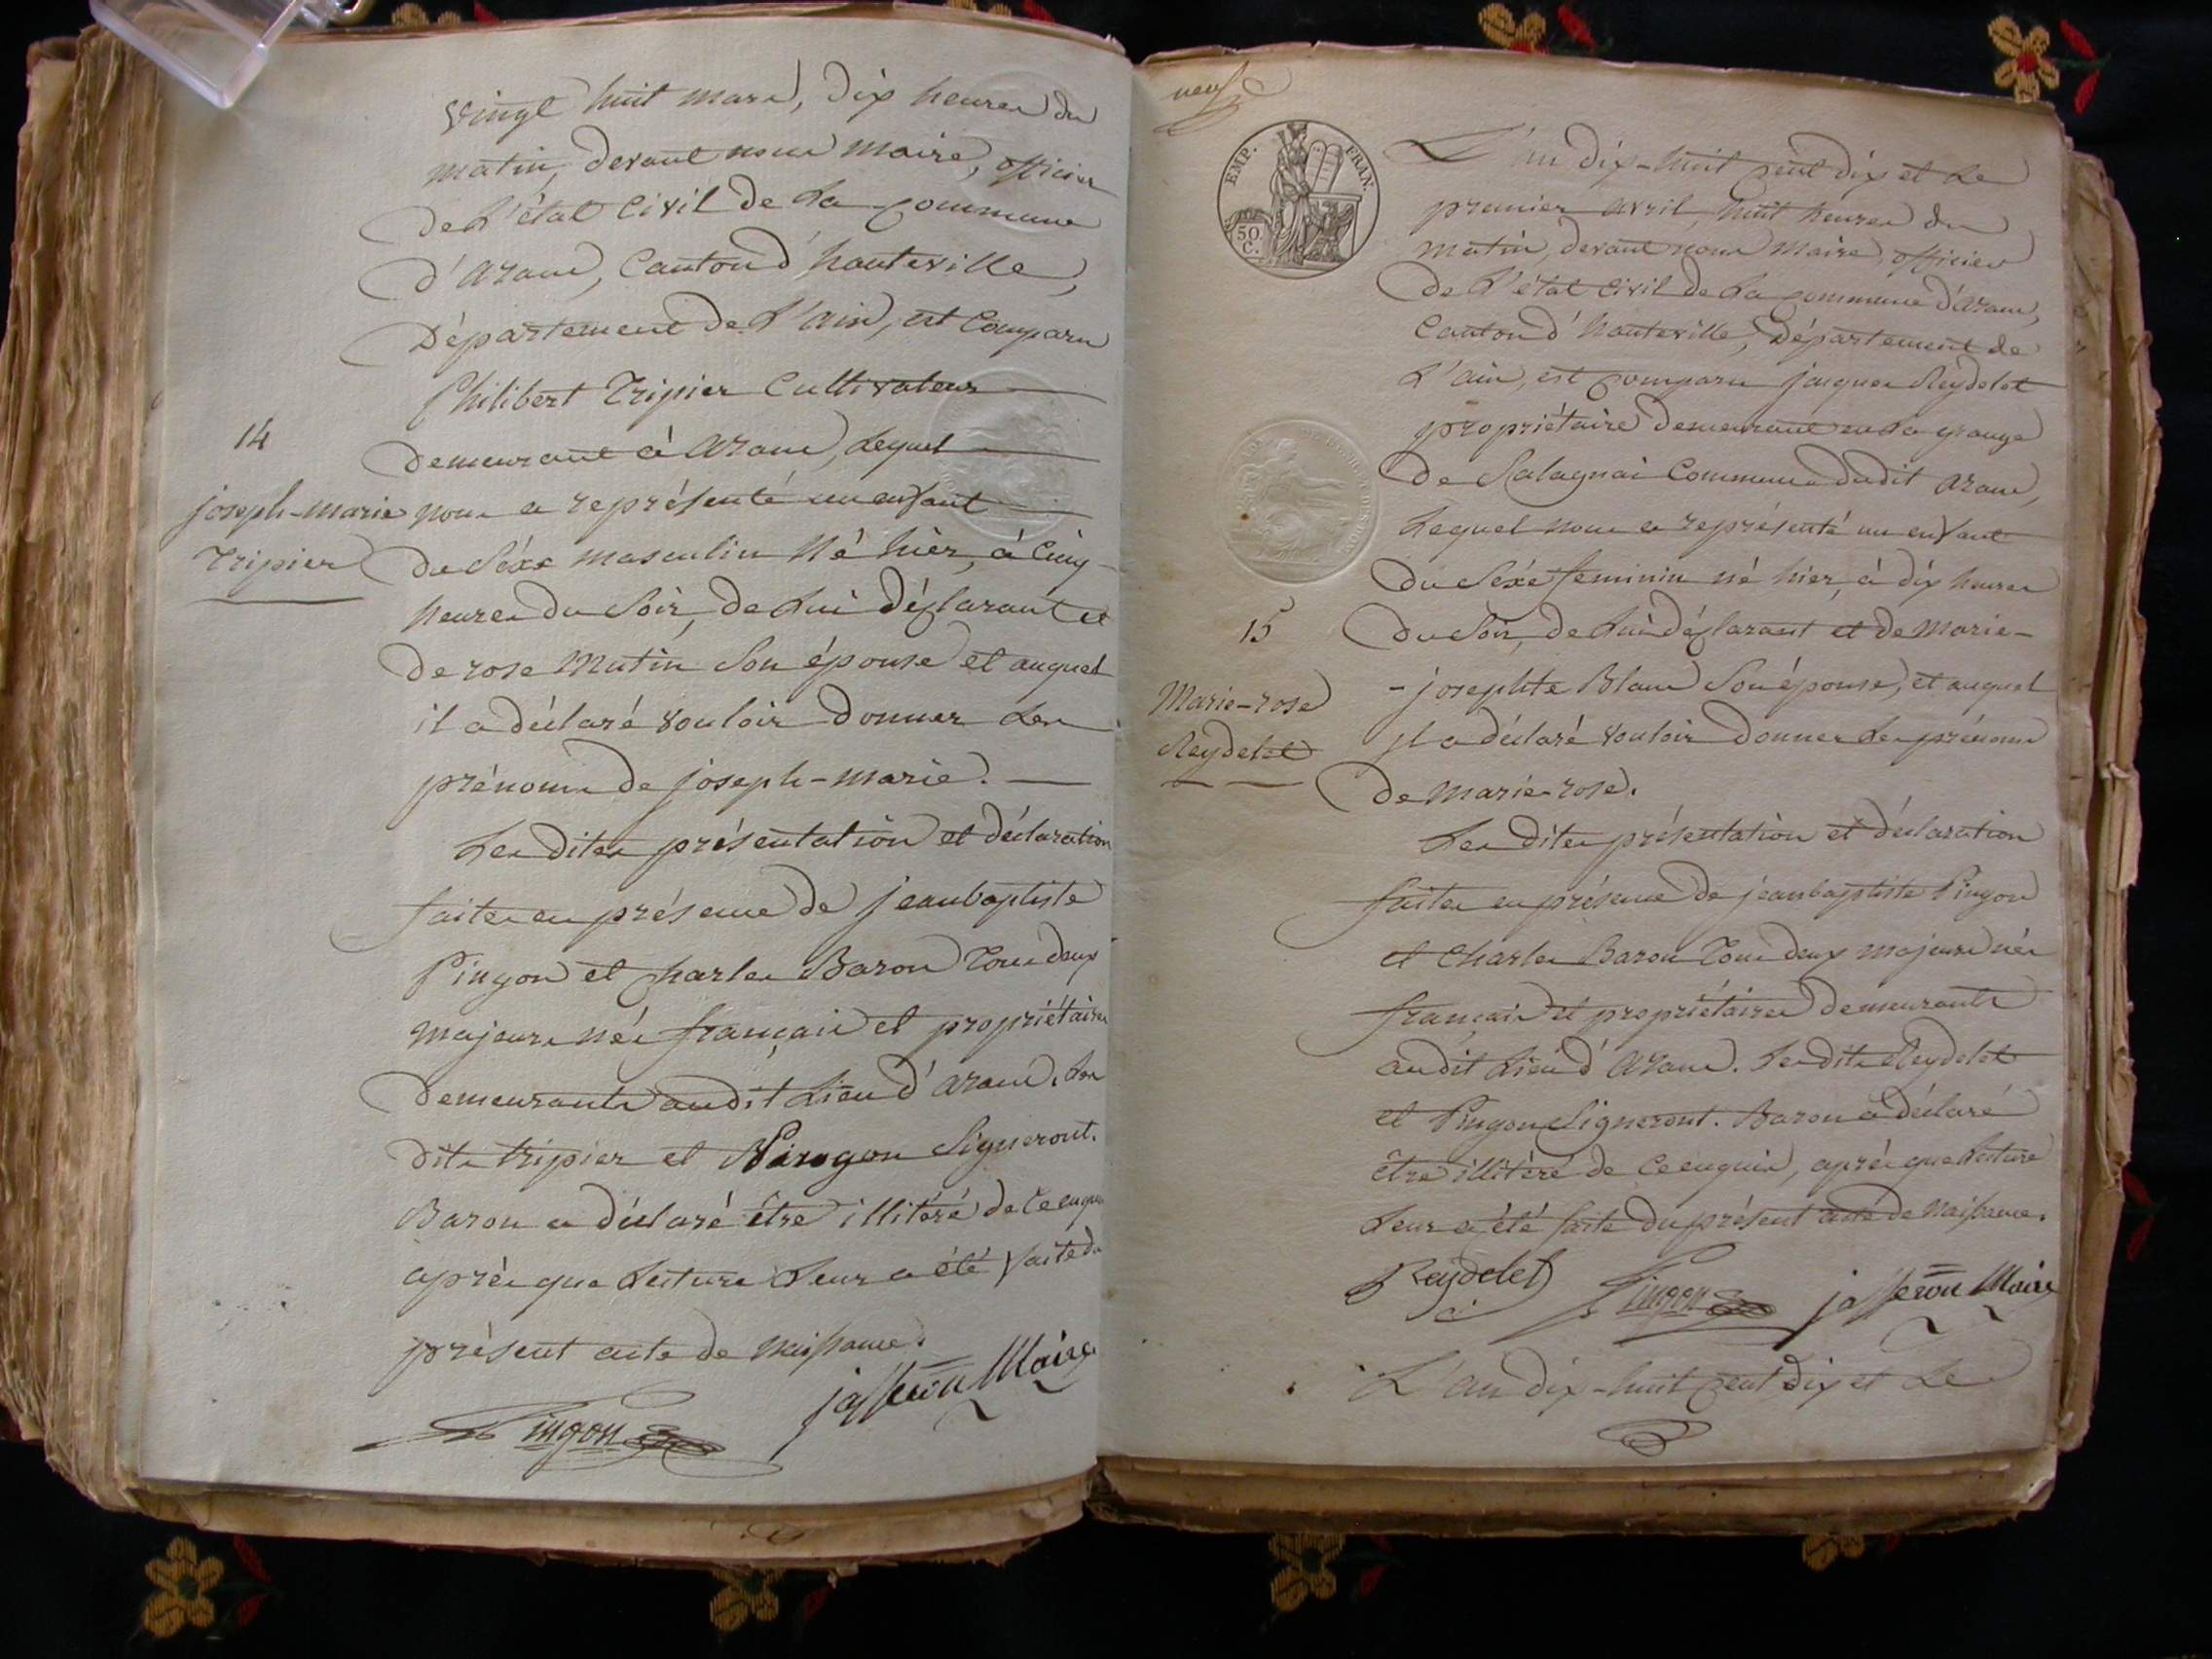 vingt huit mars, dix heures du
matin, devant nous maire, officier
de L'état Civil de La commune
d'aranc, Canton d'hauteville,
Département de L'ain, est Comparu
Philibert Tripier Cultivateur
demeurant à aranc, Lequel
14
joseph-marie
Tripier
nous a représenté un enfant
du Séxe masculin Né hier, à Cinq
heures du Soir, de Lui déclarant et
de rose Matin Son épouse et auquel
il a déclaré vouloir donner Les
prénoms de joseph-marie.
Les dites présentation et déclaration
faites en présence de jeanbaptiste
Pingon et charles Baron Tous deux
majeurs nés français et propriétaires
demeurants audit Lieu d'aranc. Les
dits tripier et Pingon Signeront.
Baron a déclaré être illitéré de Ce enquis
après que Lecture Leur a été faite du
présent acte de Naissance.
Pingon
jasseron Maire
neuf
EMP. FRAN.
50.
C.
L'an dix-huit cent dix et Le
premier avril, huit heures du
matin, devant nous Maire, officier
de L'état Civil de La commune d'aranc,
Canton d'hauteville, Département de
L'ain, est comparu jacques Reydelet
propriétaire demeurant en La grange
de Salagnai Commune dudit aranc,
Lequel nous a représenté un enfant
du Séxe feminin né hier, à dix heures
15
Marie-rose
Reydelet
du Soir, de Lui déclarant et de Marie-
-josephte Blanc Son épouse, et auquel
il a déclaré vouloir donner Les prénoms
de Marie-rose.
Les dites présentation et déclaration
faites en présence de jeanbaptiste Pingon
et Charles Baron Tous deux majeurs nés
français et propriétaires demeurants
audit Lieu d'aranc. Les dits Reydelet
et Pingon Signeront. Baron a déclaré
être illitéré de Ce enquis, après que Lecture
Leur a été faite du présent acte de Naissance.
Reydelet
Pingon
jasseron Maire
L'an dix-huit cent dix et Le